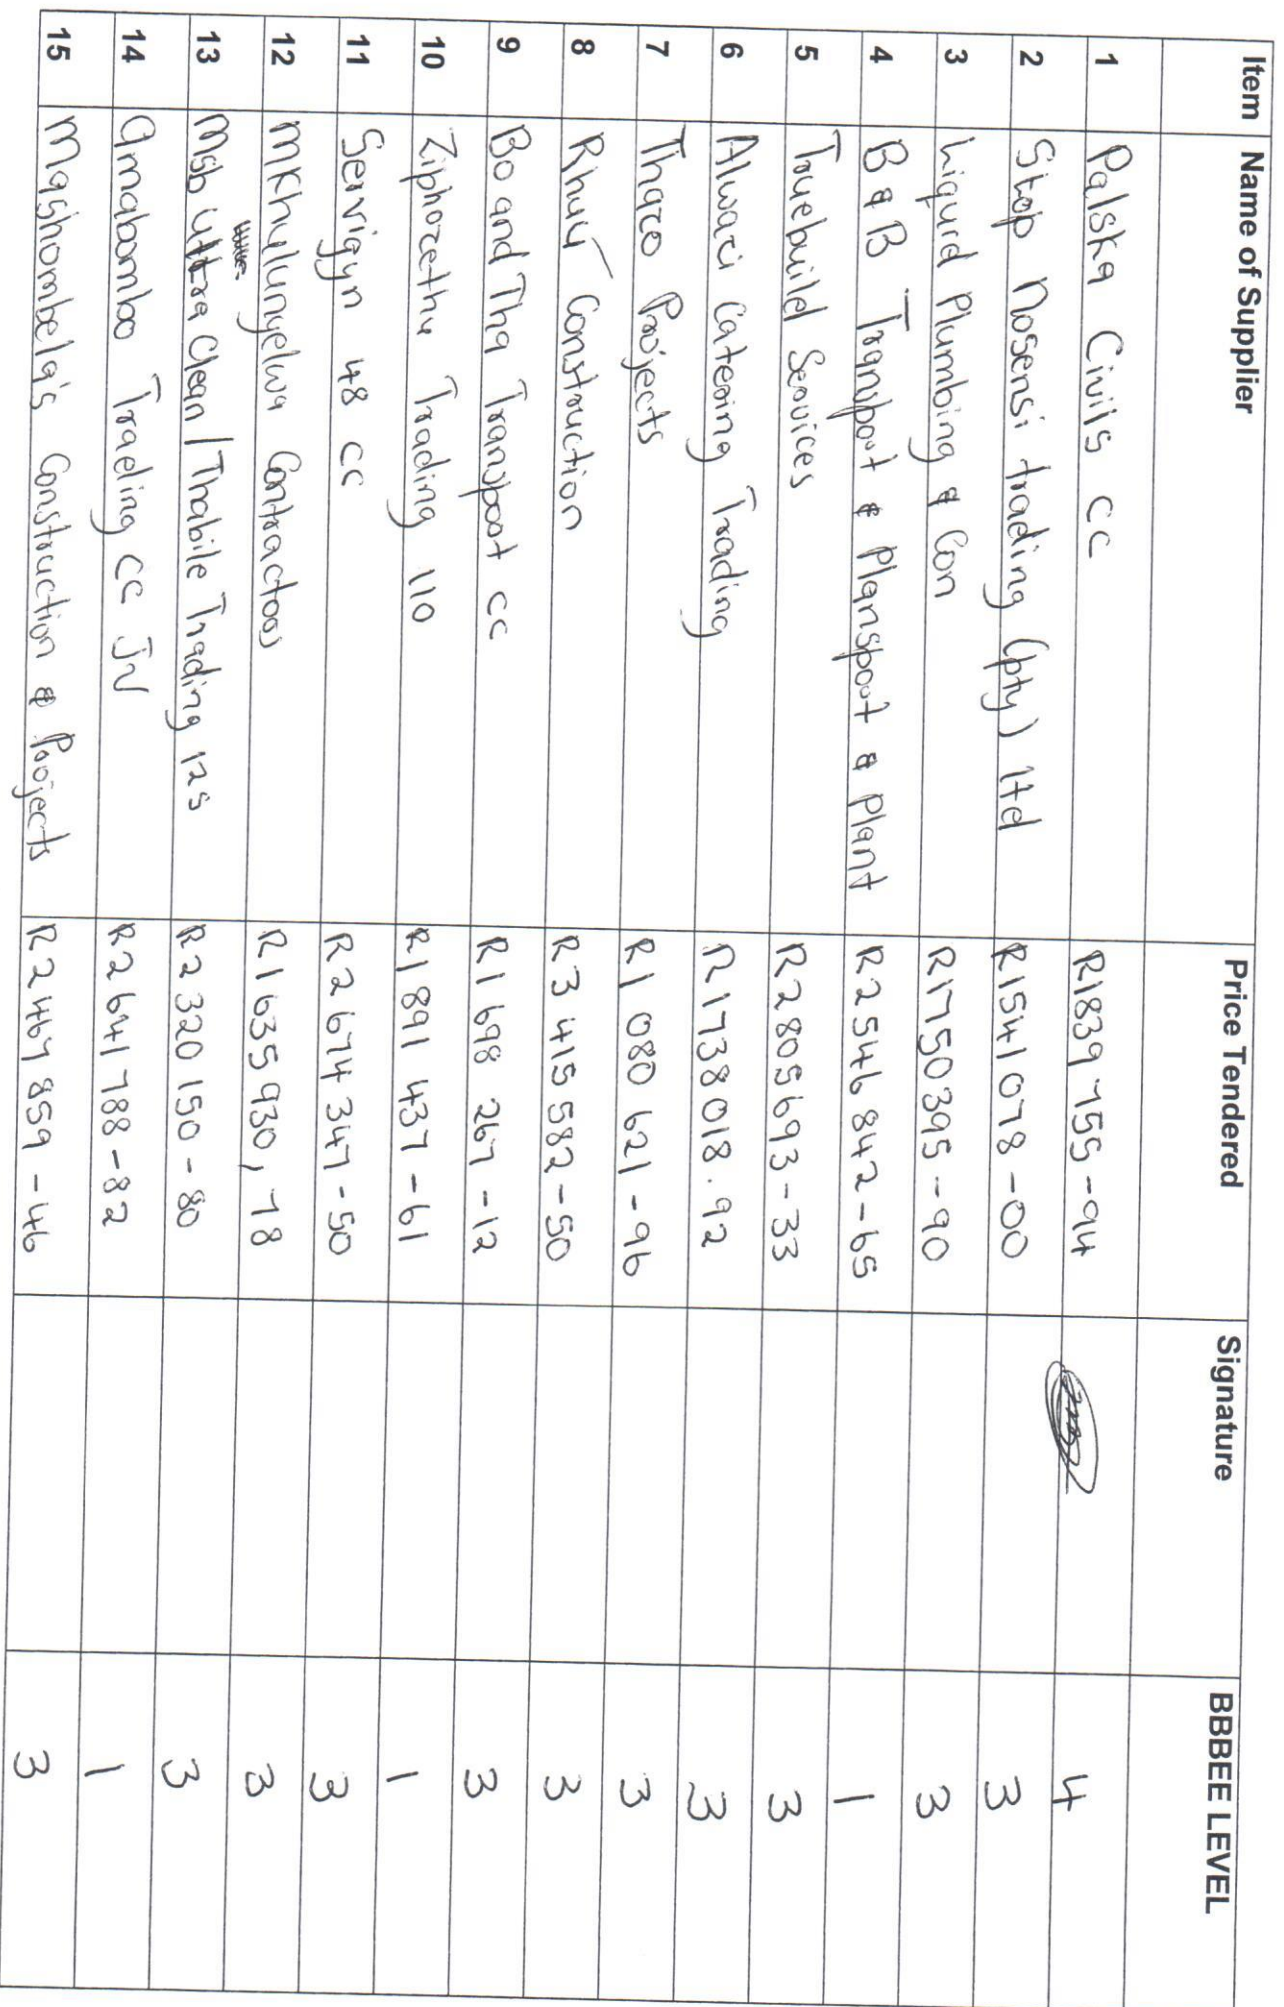 Item Name of Supplier Price Tendered Signature BBBEE LEVEL
1 Palska Civils cc R1839 755-94 4
2 Stop Nosensi trading (pty) ltd R1541078-00 3
3 Liquid Plumbing & Con R1750395-90 3
4 B & B Transport & Plansport & Plant R2546842-65 1
5 Truebuild Services R2805693-33 3
6 Alwaci Catering Trading R1738018.92 3
7 Thazo Projects R1 080 621-96 3
8 Rhuu Construction R3 415 582-50 3
9 Bo and Tha Transport cc R1 698 267-12 3
10 Ziphozethu Trading 110 R1 891 437-61 1
11 Servigyn 48 cc R2 674 347-50 3
12 Mkhulunyelwa Contractors R1 635 930,78 3
13 Msb Ultra Clean / Thabile Trading 125 R2 320 150-80 3
14 Amabombo Trading cc JV R2 641 788-82 1
15 Mashombela's Construction & Projects R2 467 859-46 3